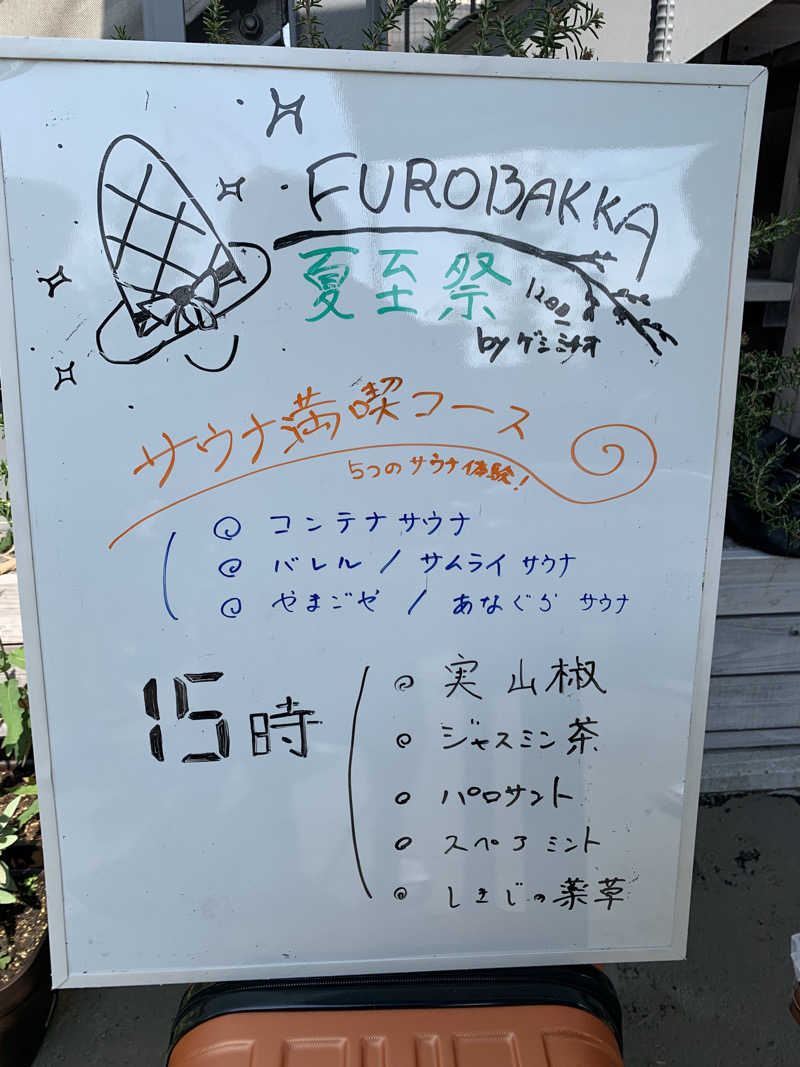 FUROBAKKA
夏至祭
by ゲシミナオ
サウナ満喫コース
5つのサウナ体験!
コンテナサウナ
バレル / サムライサウナ
やまごや / あなぐら サウナ
15時
実山椒
ジャスミン茶
パロサント
スペアミント
しきじの薬草